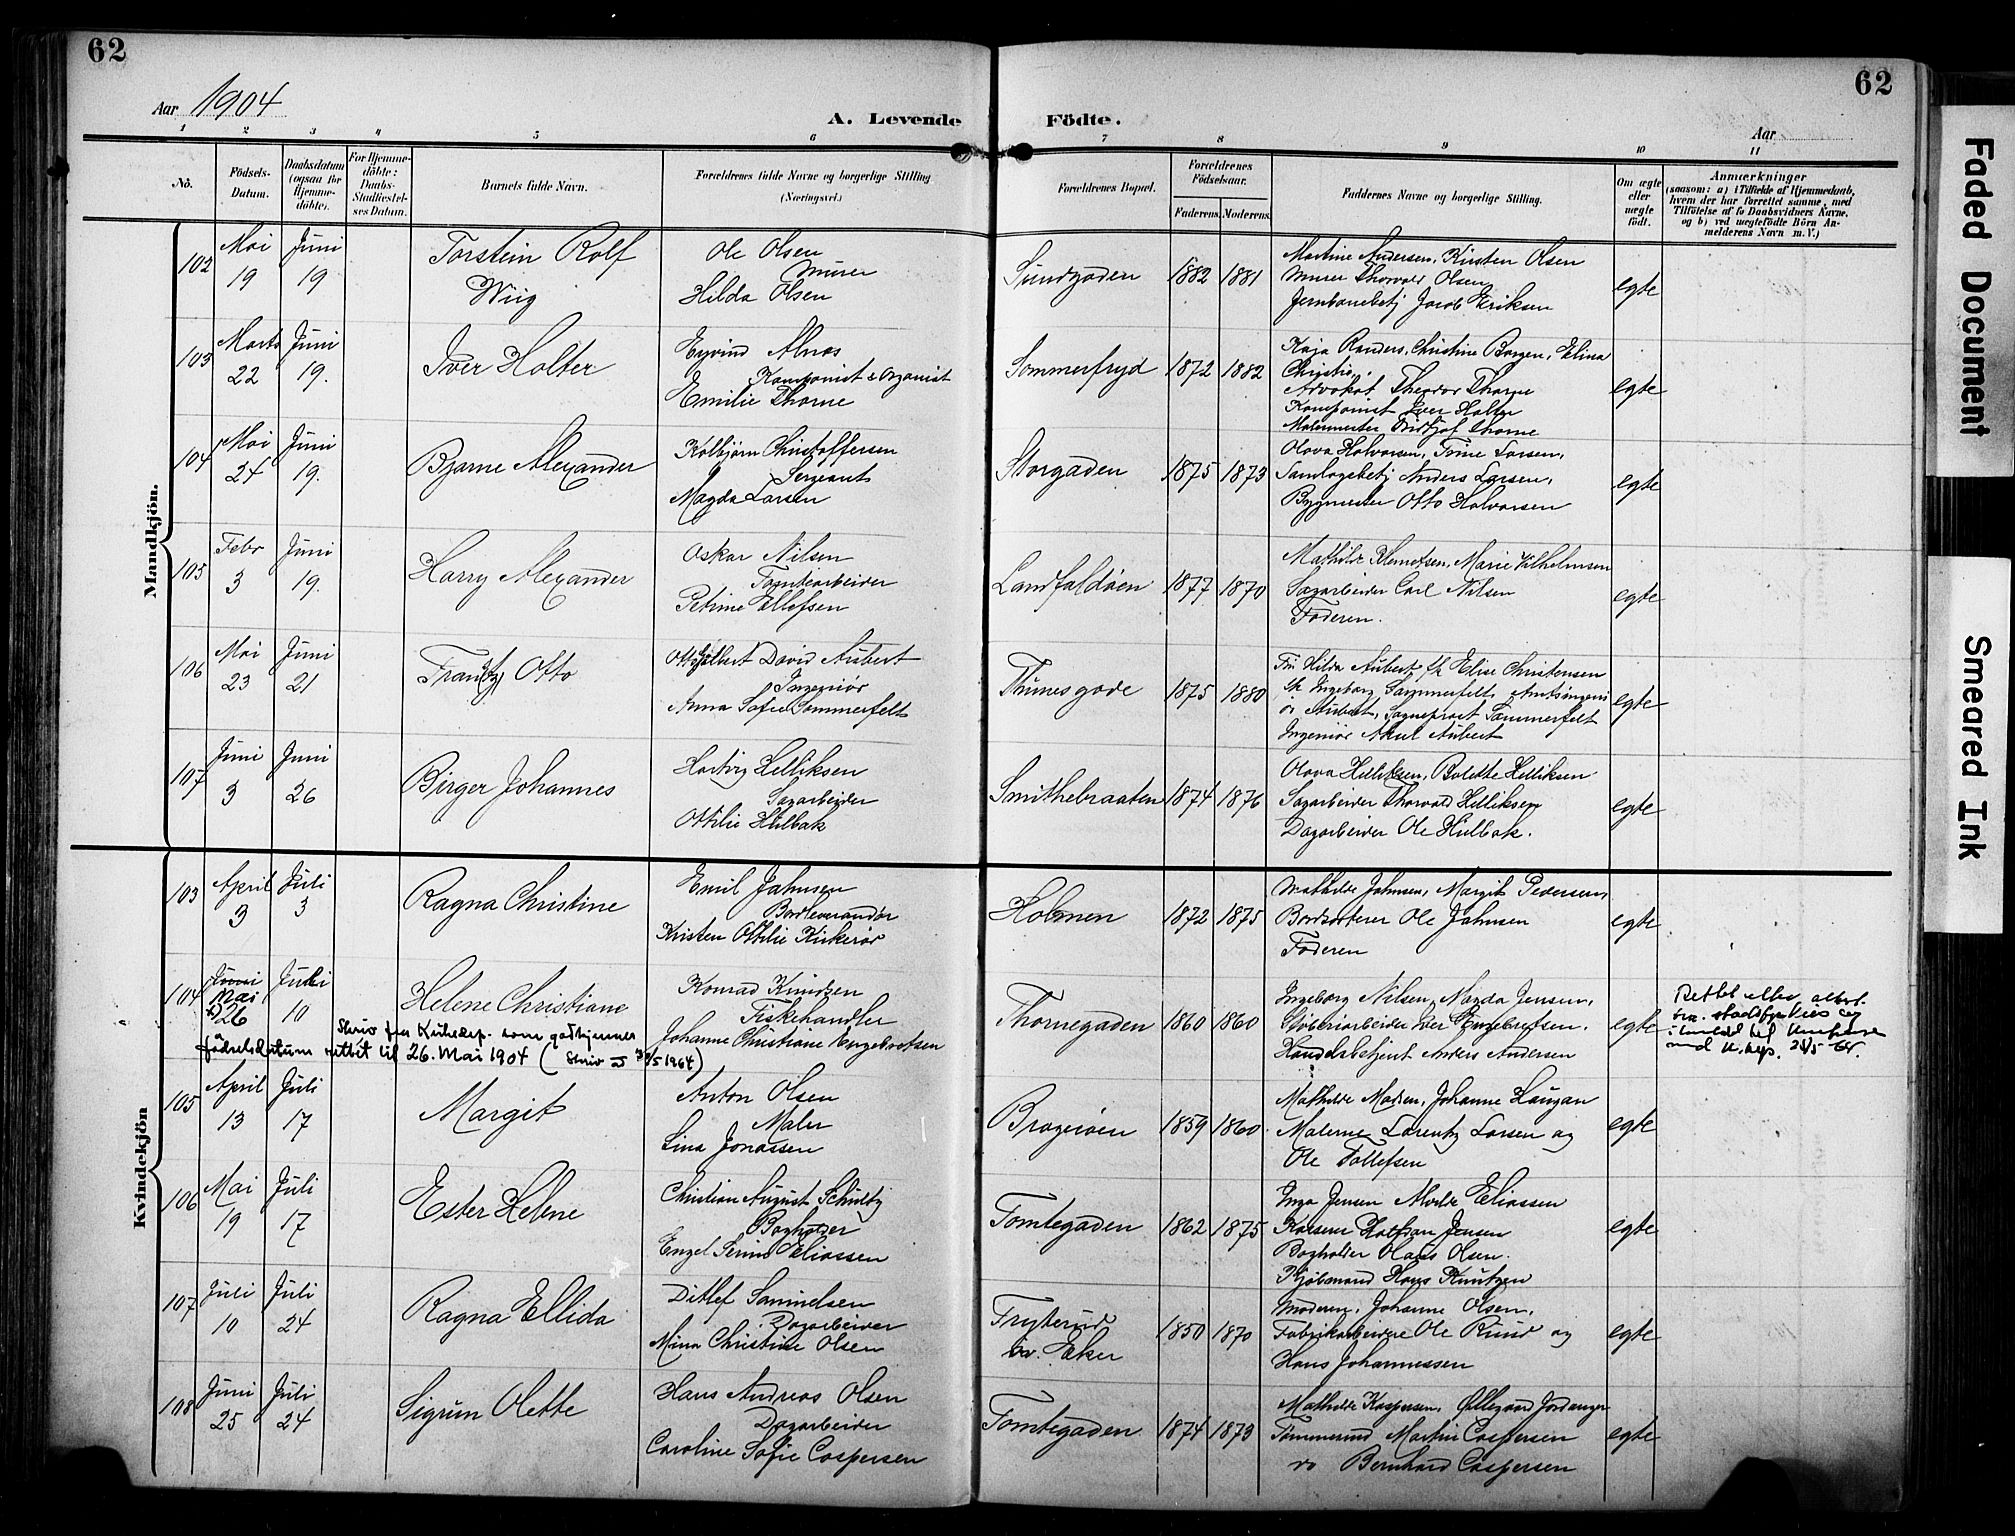 62
62
Aar 1904
A. Levende Födte.
Aar
1 2 3 4 5 6 7 8 9 10 11
No.
Födsels-Datum.
Daabsdatum (ogsaa for Hjemme-döbte).
For Hjemme-döbte: Daabs-Stadfæstel-ses Datum.
Barnets fulde Navn.
Forældrenes fulde Navne og borgerlige Stilling (Næringsvei.)
Forældrenes Bopæl.
Forældrenes Födselsaar.
Faderens. Moderens.
Faddernes Navne og borgerlige Stilling.
Om ægte eller uægte födt.
Anmærkninger
(saasom: a) i Tilfælde af Hjemmedaab,
hvem der har forrettet samme, med
Tilföielse af to Daabsvidners Navne,
og b) ved uægtefödte Börn An-
melderens Navn m. V.)
Mandkjön.
102 Mai 19 Juni 19 Torstein Rolf Wiig
Ole Olsen
Murer
Hilda Olsen
Sundgaden 1882 1881
Martine Andersen, Kirsten Olsen
Murer Thorvald Olsen
Jernbanebetj Jacob Eriksen
egte
103 Marts 22 Juni 19. Iver Holter
Eyvind Alnæs
Komponist & Organist
Emilie Thorne
Sommerfryd 1872 1882
Kaja Randers, Christine Borgen, Elina
Christie,
Advokat Theodor Thorne
Komponist Iver Holter
Malermester Fridtjof Thorne
egte
104 Mai 24 Juni 19. Bjarne Alexander
Kolbjørn Christoffersen
Sergeant
Magda Larsen
Storgaden 1875 1873
Olava Halvorsen, Trine Larsen,
Samlagsbetj Anders Larsen,
Bygmester Otto Halvorsen
egte
105 Febr 3 Juni 19. Harry Alexander
Oskar Nilsen
Tomtearbeider
Petrine Ellefsen
Landfaldøen 1877 1870
Mathilde Klemetsen, Marie Vilhelmsen
Sagarbeider Carl Nilsen
Faderen.
egte
106 Mai 23 Juni 21 Frantz Otto
Otto Gilbert David Aubert
Ingeniør
Anna Sofie Sommerfelt
Thunesgade 1875 1880
Fru Hilda Aubert, frk Elise Christensen
frk Ingeborg Sommerfelt, Amtsingeni
ør Aubert, Sogneprest Sommerfelt
Ingeniør Axel Aubert
egte
107 Juni 3 Juni 26 Birger Johannes
Hartvig Helliksen
Sagarbeider
Ottilie Hulbak
Smithebraaten 1874 1876
Olava Helliksen, Bolette Helliksen
Sagarbeider Thorvald Helliksen
Dagarbeider Ole Hulbak.
egte
Kvindekjön
103 April 3 Juli 3 Ragna Christine
Emil Jahnsen
Bordleverandør
Kristen Ottilie Kirkerør
Holmen 1872 1875
Mathilde Jahnsen, Margit Pedersen,
Bordsorterer Ole Jahnsen
Faderen
egte
104 Juni Mai 26 Juli 10 Helene Christiane
Konrad Knudsen
Fiskehandler
Johanne Christiane Engebretsen
Thornegaden 1860 1860
Ingeborg Nilsen, Magda Jensen,
Støberiarbeider Iver Engebretsen.
Handelsbetjent Anders Andersen
egte
Rettet efter attest.
Skriv fra Kirkedep. som godkjenner
fødselsdatum rettet til 26. Mai 1904 (Skriv 1964)
105 April 13 Juli 17 Margit
Anton Olsen
Maler
Lina Jonassen
Bragerøen 1859 1860
Mathilde Madsen, Johanne Haugan
Malerne Lorentz Larsen og
Ole Tollefsen
egte
106 Mai 19 Juli 17 Ester Helene
Christian August Schultz
Bogholder
Engel Serine Eliassen
Tomtegaden 1862 1875
Inga Jensen Eliassen
Jensen
Bogholder Olaus Olsen.
Kjøbmand Hans Knutzen
egte
107 Juli 10 Juli 24 Ragna Ellida
Ditlef Samuelsen
Dagarbeider
Mina Christine Olsen
Fryterud
Eker
1850 1870
Moderen, Johanne Olsen,
Fabrikarbeidere Ole Ruud og
Hans Johannessen
egte
108 Juni 25 Juli 24 Sigrun Olette
Hans Andreas Olsen
Dagarbeider
Caroline Sofie Caspersen
Tomtegaden 1874 1873
Mathilde Kaspersen,
Martin Caspersen
Bernhard Caspersen
egte
Faded Document
Smeared Ink